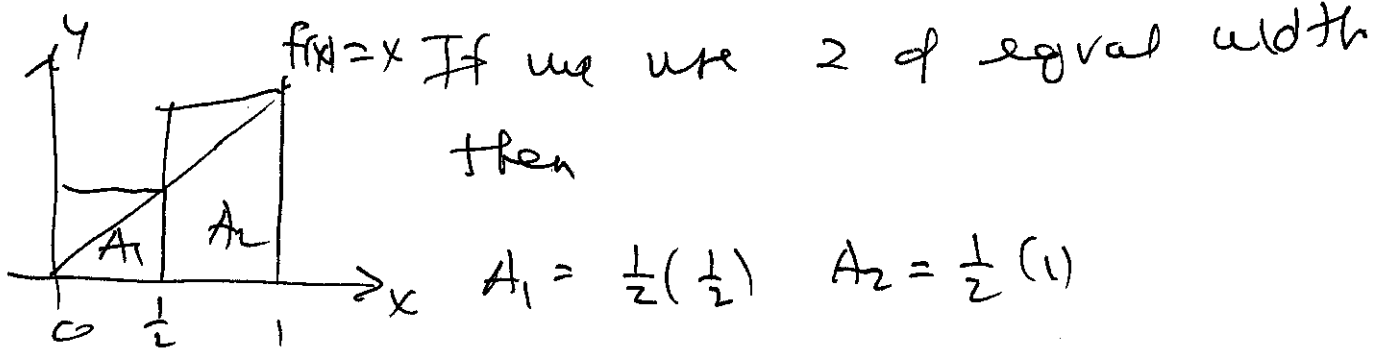 y
f(x)=x If we use 2 of equal width
then
A₁ A₂
A₁ = ½(½) A₂ = ½(1)
x
0 ½ 1